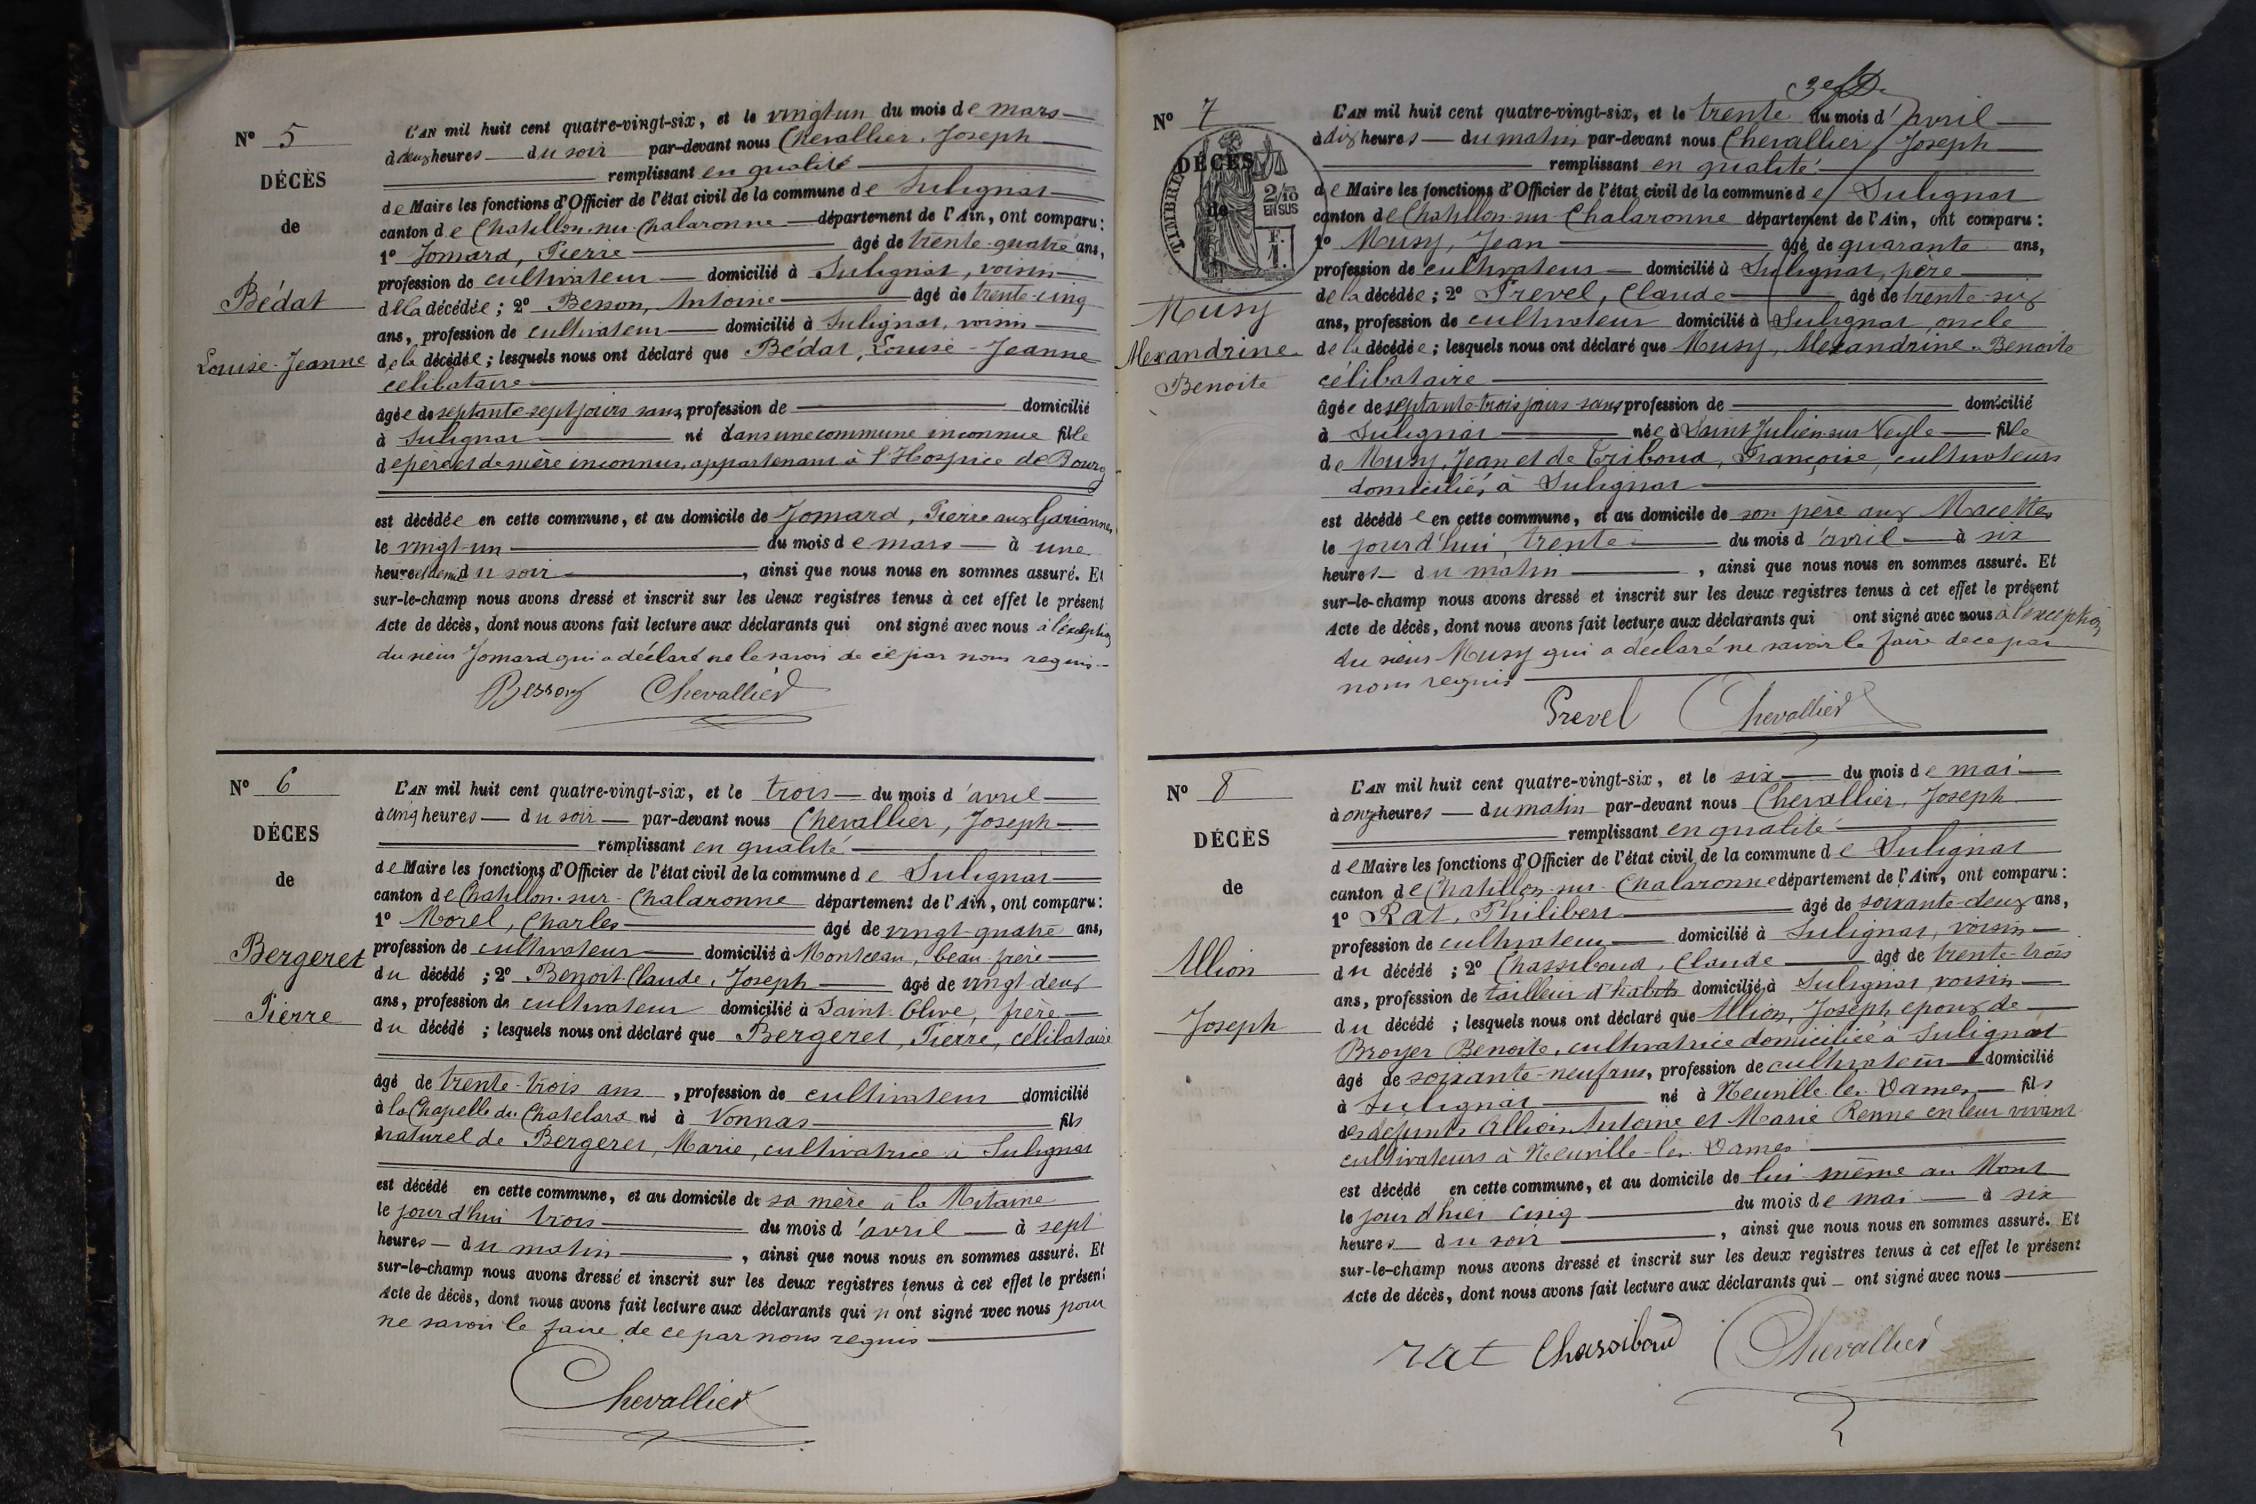 N° 5
DÉCÈS
de
Bédat
Louise-Jeanne
L'AN mil huit cent quatre-vingt-six, et le vingt un du mois de mars
à deux heures du soir par-devant nous Chevallier, Joseph
remplissant en qualité
de Maire les fonctions d'Officier de l'état civil de la commune de Sulignat
canton de Chatillon-sur-Chalaronne département de l'Ain, ont comparu :
1° Jomard, Pierre âgé de trente-quatre ans,
profession de cultivateur domicilié à Sulignat, voisin
de la décédée ; 2° Besson, Antoine âgé de trente-cinq
ans, profession de cultivateur domicilié à Sulignat, voisin
de la décédée ; lesquels nous ont déclaré que Bédat, Louise-Jeanne
célibataire
âgée de septante-sept jours sans profession de domicilié
à Sulignat né dans une commune inconnue fille
de père et de mère inconnus, appartenant à l'Hospice de Bourg
est décédée en cette commune, et au domicile de Jomard, Pierre aux Gariannes
le vingt-un du mois de mars à une
heure et demie du soir, ainsi que nous nous en sommes assuré. Et
sur-le-champ nous avons dressé et inscrit sur les deux registres tenus à cet effet le présent
Acte de décès, dont nous avons fait lecture aux déclarants qui ont signé avec nous à l'exception
du sieur Jomard qui a déclaré ne le savoir de ce par nous requis
Besson Chevallier
N° 6
DÉCES
de
Bergeret
Pierre
L'AN mil huit cent quatre-vingt-six, et le trois du mois d'avril
à cinq heures du soir par-devant nous Chevallier, Joseph
remplissant en qualité
de Maire les fonctions d'Officier de l'état civil de la commune de Sulignat
canton de Chatillon-sur-Chalaronne département de l'Ain, ont comparu :
1° Morel, Charles âgé de vingt-quatre ans,
profession de cultivateur domicilié à Montceau, beau-frère
du décédé ; 2° Benoit Claude, Joseph âgé de vingt-deux
ans, profession de cultivateur domicilié à Saint-Olive, frère
du décédé ; lesquels nous ont déclaré que Bergeret, Pierre, célibataire
âgé de trente-trois ans, profession de cultivateur domicilié
à la Chapelle du Chatelard né à Vonnas fils
naturel de Bergeret, Marie, cultivatrice à Sulignat
est décédé en cette commune, et au domicile de sa mère à la Mitaine
le jour d'hui trois du mois d'avril à sept
heures du matin, ainsi que nous nous en sommes assuré. Et
sur-le-champ nous avons dressé et inscrit sur les deux registres tenus à cet effet le présent
Acte de décès, dont nous avons fait lecture aux déclarants qui n'ont signé avec nous pour
ne savoir le faire de ce par nous requis
Chevallier
N° 7
DÉCÈS
de
TIMBRE
2/10
EN SUS
F.
1.
Musy
Alexandrine
Benoite
L'AN mil huit cent quatre-vingt-six, et le trente du mois d'avril
à dix heures du matin par-devant nous Chevallier, Joseph
remplissant en qualité
de Maire les fonctions d'Officier de l'état civil de la commune de Sulignat
canton de Chatillon-sur-Chalaronne département de l'Ain, ont comparu :
1° Musy, Jean âgé de quarante ans,
profession de cultivateur domicilié à Sulignat, père
de la décédée ; 2° Prevel, Claude âgé de trente-six
ans, profession de cultivateur domicilié à Sulignat, oncle
de la décédée ; lesquels nous ont déclaré que Musy, Alexandrine-Benoite
célibataire
âgée de septante-trois jours sans profession de domicilié
à Sulignat née à Saint Julien-sur Veyle fille
de Musy, Jean et de Triboud, Françoise, cultivateurs
domiciliés à Sulignat
est décédée en cette commune, et au domicile de son père aux Macettes
le jour d'hui, trente du mois d'avril à six
heures du matin, ainsi que nous nous en sommes assuré. Et
sur-le-champ nous avons dressé et inscrit sur les deux registres tenus à cet effet le présent
Acte de décès, dont nous avons fait lecture aux déclarants qui ont signé avec nous à l'exception
du sieur Musy qui a déclaré ne savoir le faire de ce par
nous requis
Prevel Chevallier
N° 8
DÉCÈS
de
Allion
Joseph
L'AN mil huit cent quatre-vingt-six, et le six du mois de mai
à onze heures du matin par-devant nous Chevallier, Joseph
remplissant en qualité
de Maire les fonctions d'Officier de l'état civil de la commune de Sulignat
canton de Chatillon-sur-Chalaronne département de l'Ain, ont comparu :
1° Rat, Philibert âgé de soixante-deux ans,
profession de cultivateur domicilié à Sulignat, voisin
du décédé ; 2° Chassiboud, Claude âgé de trente-trois
ans, profession de tailleur d'habits domicilié à Sulignat, voisin
du décédé ; lesquels nous ont déclaré que Allion, Joseph époux de
Broyer Benoite, cultivatrice domiciliée à Sulignat
âgé de soixante-neuf ans, profession de cultivateur domicilié
à Sulignat né à Neuville-les-Dames fils
des défunts Allion Antoine et Marie Renne en leur vivant
cultivateurs à Neuville-les-Dames
est décédé en cette commune, et au domicile de lui-même au Mont
le jour d'hier cinq du mois de mai à six
heures du soir, ainsi que nous nous en sommes assuré. Et
sur-le-champ nous avons dressé et inscrit sur les deux registres tenus à cet effet le présent
Acte de décès, dont nous avons fait lecture aux déclarants qui ont signé avec nous
rat Chassiboud Chevallier